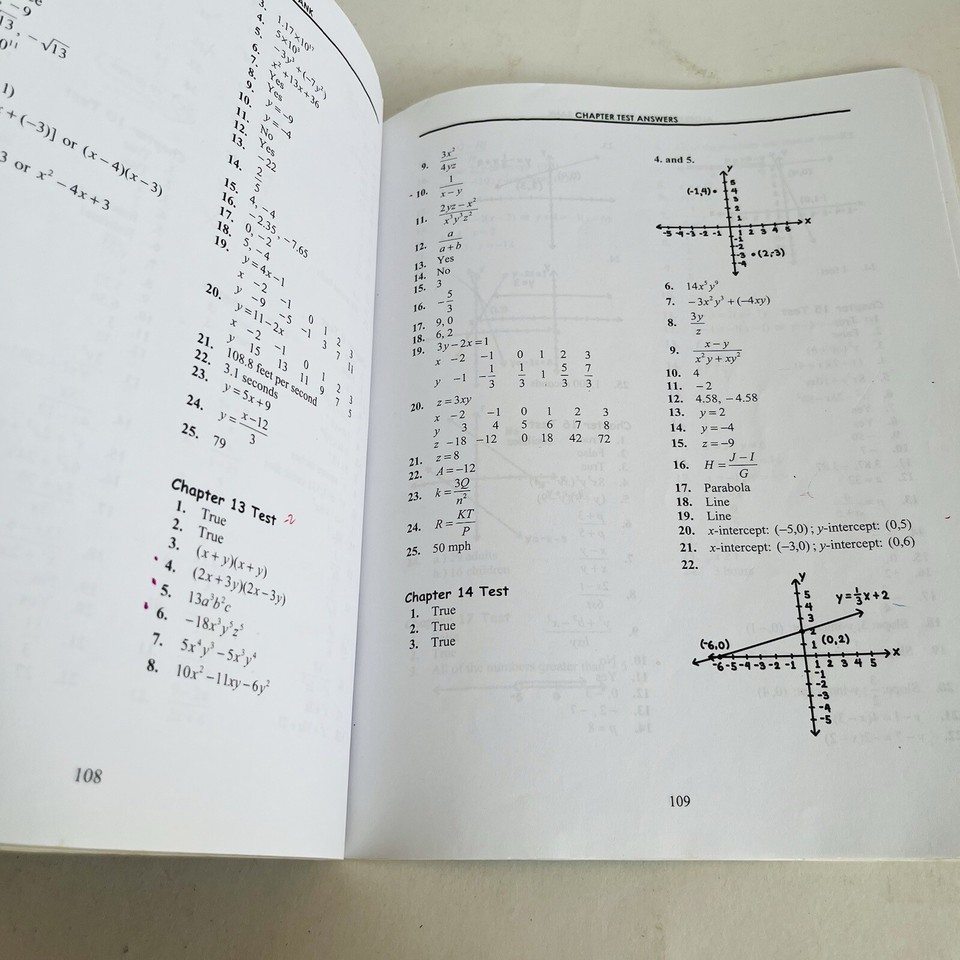 -9
, -√13
1)
+ (-3)] or (x - 4)(x - 3)
3 or x² - 4x + 3
3. 1.17×10¹¹
4. 5×10³
5. -3y² + (-7y³)
6. x² + 13x + 36
7. Yes
8. Yes
9. y = -9
10. y = -4
11. No
12. Yes
13. -22
14. 2/5
15. 4, -4
16. -2.35, -7.65
17. 0, -2
18. 5, -4
19. y = 4x - 1
x -2 -1 0 1 2 3
y -9 -5 -1 3 7 11
20. y = 11 - 2x
x -2 -1 0 1 2 3
y 15 13 11 9 7 5
21. 108.8 feet per second
22. 3.1 seconds
23. y = 5x + 9
24. y = (x - 12)/3
25. 79
Chapter 13 Test
1. True
2. True
3. (x + y)(x + y)
4. (2x + 3y)(2x - 3y)
5. 13a³b²c
6. -18x³y⁵z⁵
7. 5x⁴y³ - 5x³y⁴
8. 10x² - 11xy - 6y²
108
CHAPTER TEST ANSWERS
9. 3x²/4yz
10. 1/(x - y)
11. (2yz - x²)/(x³y³z²)
12. a/(a + b)
13. Yes
14. No
15. 3
16. -5/3
17. 9, 0
18. 6, 2
19. 3y - 2x = 1
x -2 -1 0 1 2 3
y -1 -1/3 1/3 1 5/3 7/3
20. z = 3xy
x -2 -1 0 1 2 3
y 3 4 5 6 7 8
z -18 -12 0 18 42 72
21. z = 8
22. A = -12
23. k = 3Q/n²
24. R = KT/P
25. 50 mph
Chapter 14 Test
1. True
2. True
3. True
4. and 5.
y
5
(-1,4) 4
3
2
1
-5 -4 -3 -2 -1 1 2 3 4 5 x
-1
-2
-3 (2,-3)
-4
6. 14x⁵y⁹
7. -3x²y³ + (-4xy)
8. 3y/z
9. (x - y)/(x²y + xy²)
10. 4
11. -2
12. 4.58, -4.58
13. y = 2
14. y = -4
15. z = -9
16. H = (J - I)/G
17. Parabola
18. Line
19. Line
20. x-intercept: (-5,0); y-intercept: (0,5)
21. x-intercept: (-3,0); y-intercept: (0,6)
22.
y
5 y = 1/3 x + 2
4
3
2
(-6,0) 1 (0,2)
-6 -5 -4 -3 -2 -1 1 2 3 4 5 x
-1
-2
-3
-4
-5
109